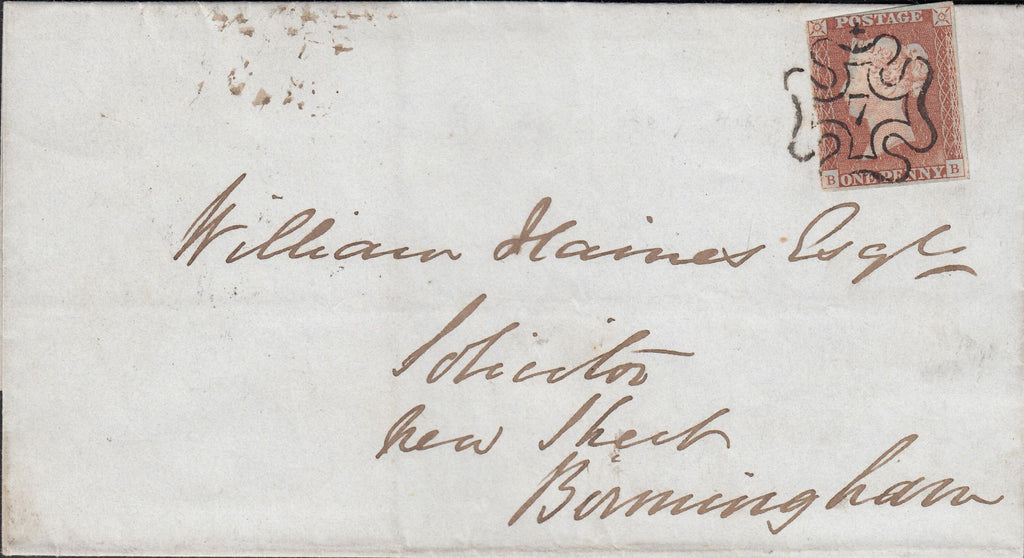 POSTAGE
7
B ONE PENNY B
William Haines Esqre
Solicitor
New Street
Birmingham